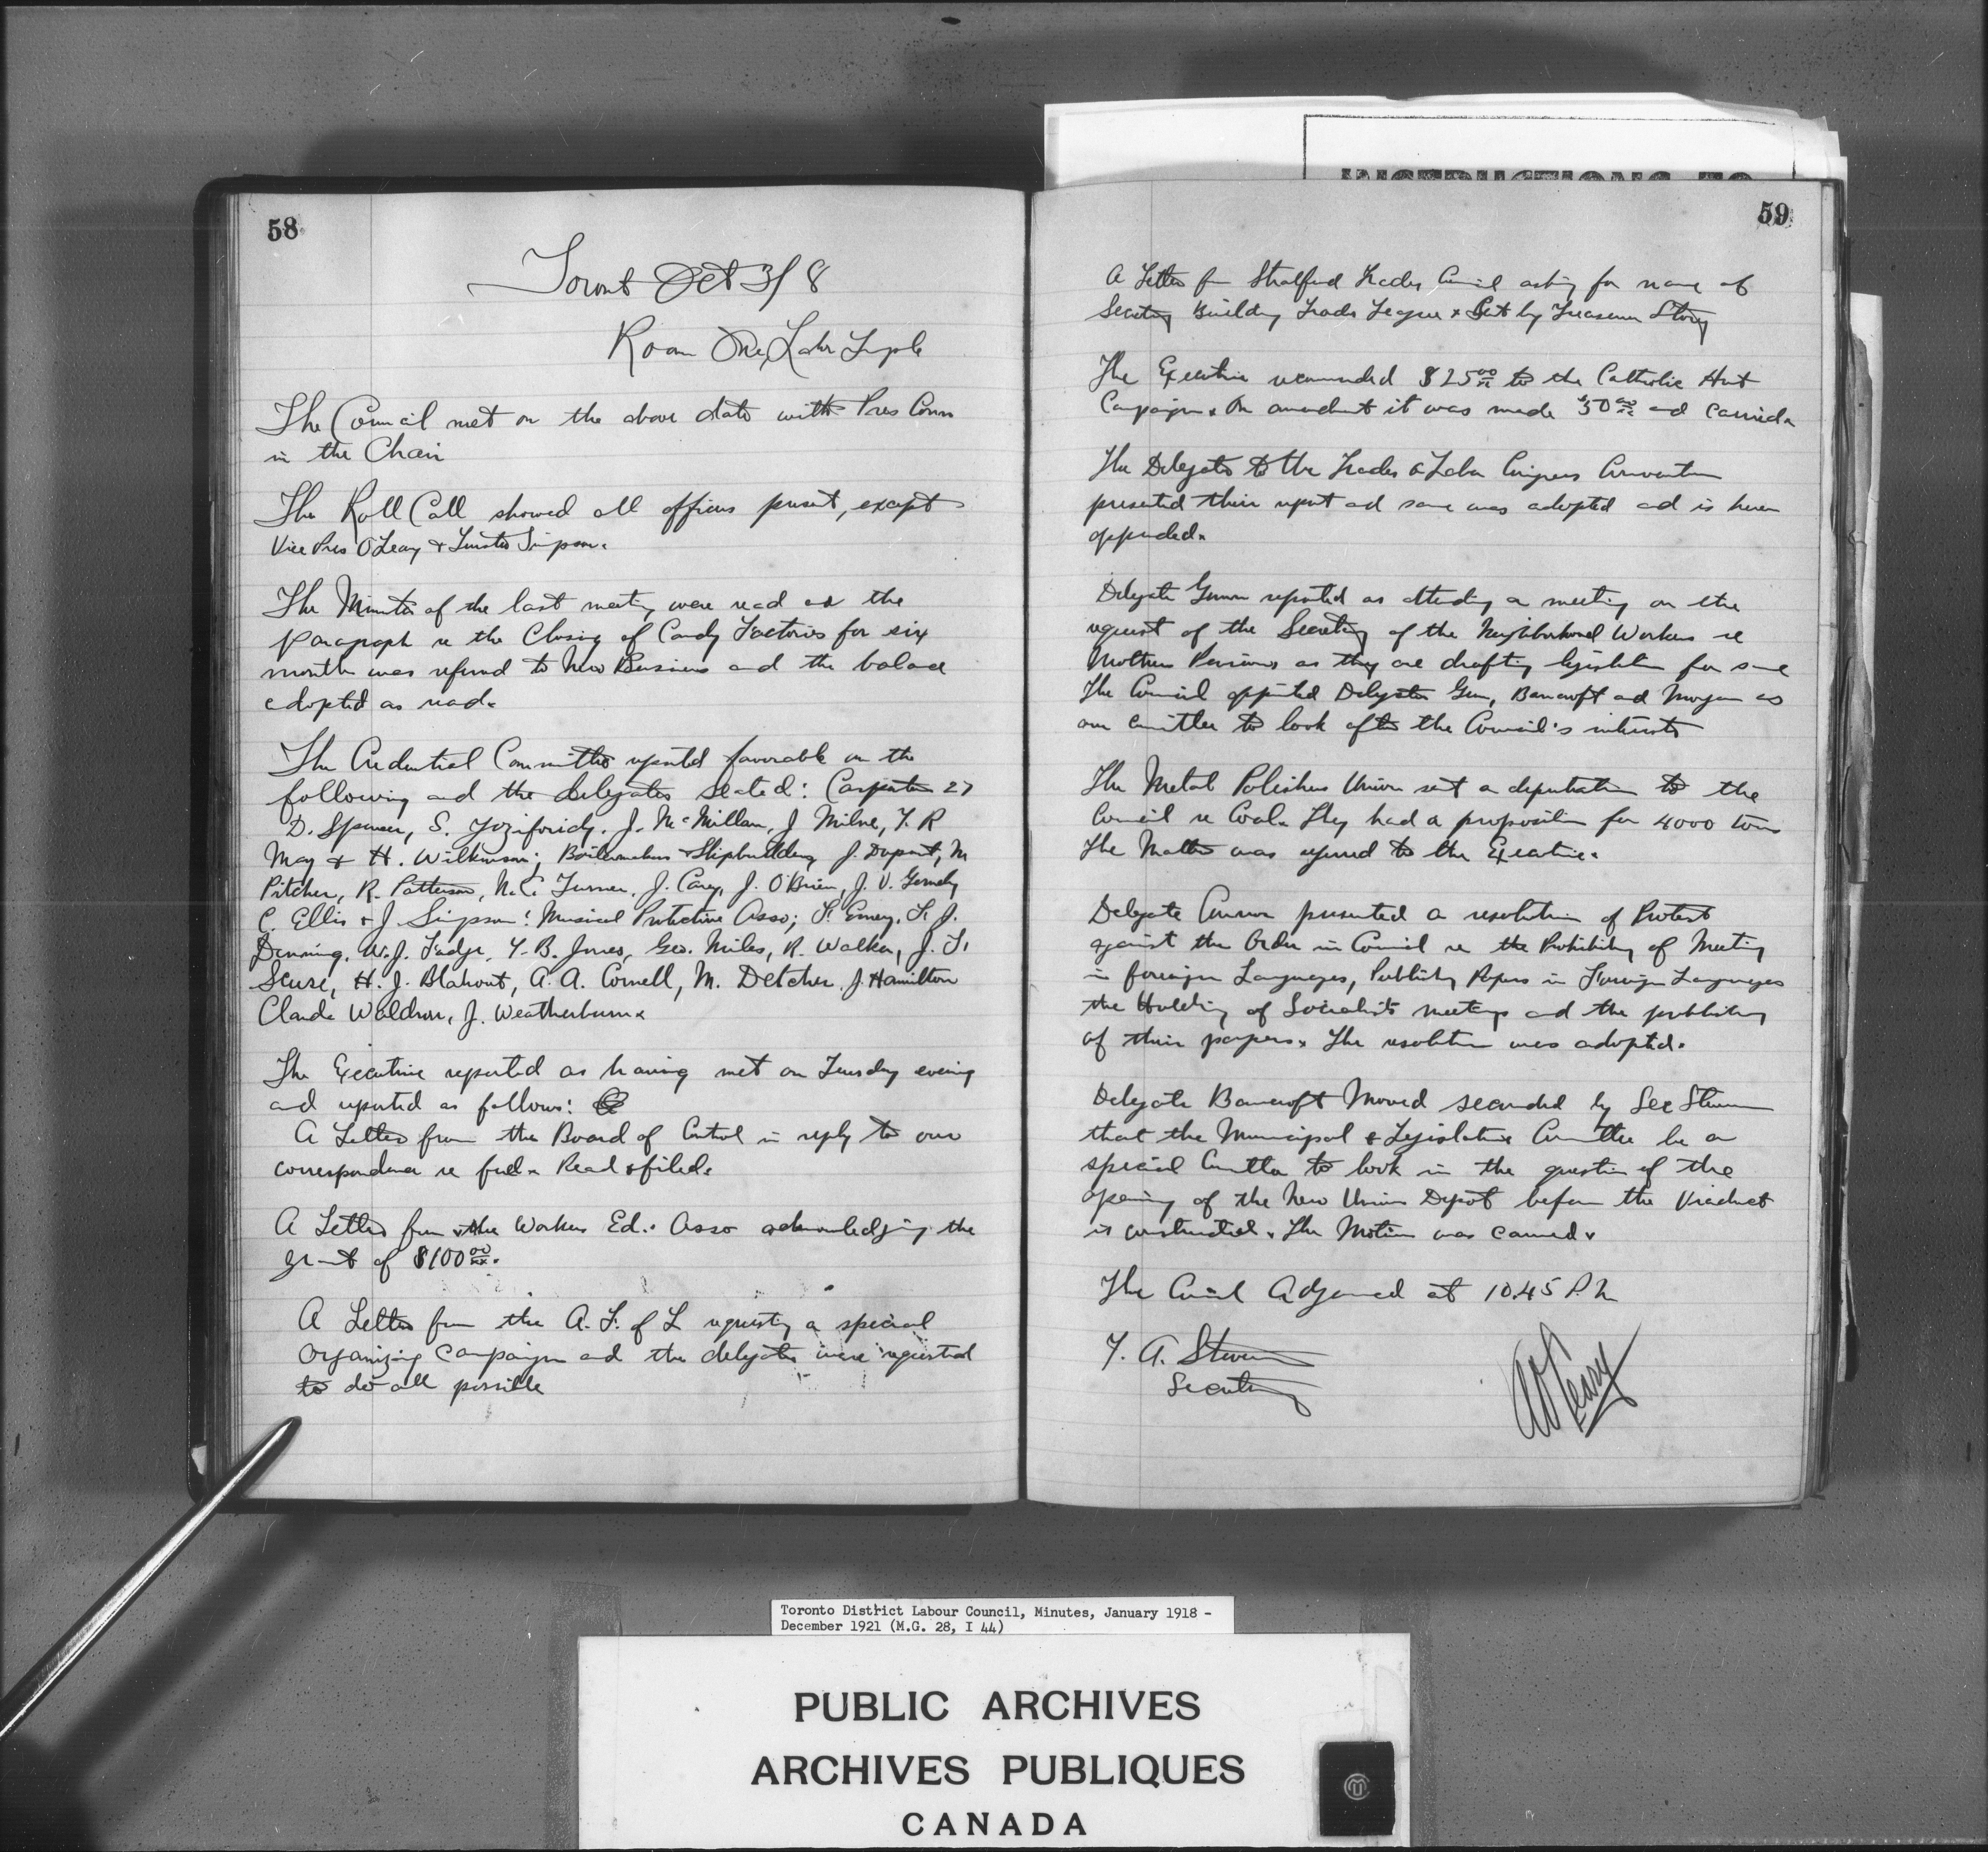 58
Toront Oct 3/8
Room One Labr Temple
The Council met on the above date with Pres Conn
in the Chair
The Roll Call showed all officers present, except
Vice Pres O'Leary & Trustee Simpson.
The Minutes of the last meeting were read and the
paragraph re the Closing of Candy Factories for six
month was referred to New Business and the balance
adopted as read.
The Credential Committee reported favorable on the
following and the delegates seated: Carpenters 27
D. Spencer, S. J. McMillan, J Milne, T. R
May & H. Wilkinson; Boilermakers & Shipbuilding J. Dupont, M
Pitcher, R. Patterson, N.C. Turner, J. Carey, J. O'Brien, J. V. Gormely
C. Ellis & J. Simpson: Musical Protective Asso; F. Emery, F. J.
Denning, W. J. Fadge, T. B. Jones, Geo. Miles, R. Walker, J. F.
Scure, H. J. Blahout, A. A. Cornell, M. Detcher, J. Hamilton
Claude Waldron, J. Weatherburn.
The Executive reported as having met on Tuesday evening
and reported as follows:
A Letter from the Board of Control in reply to our
correspondence re fuel. Read & filed.
A Letter from the Workers Ed. Asso acknowledging the
grant of $100 00/xx.
A Letter from the A. F. of L requesting a special
Organizing Campaign and the delegates were requested
to do all possible
59
A Letter from Stratford Trades Council asking for name of
Secretary Building Trades League & Sent by Treasurer Story
The Executive recommended $25 00/xx to the Catholic Hut
Campaign. On amendment it was made $50 00/xx and Carried.
The Delegates to the Trades & Labor Congress Convention
presented their report and same was adopted and is herein
appended.
Delegate Gunn reported as attending a meeting on the
request of the Secretary of the Neighborhood Workers re
Mothers Pensions as they are drafting legislation for same
The Council appointed Delegates Gunn, Bancroft and Morgan as
our Committee to look after the Council's interests
The Metal Polishers Union sent a deputation to the
Council re Coal. They had a proposition for 4000 tons
The Matter was referred to the Executive.
Delegate Connor presented a resolution of Protest
against the Order in Council re the Prohibiting of Meeting
in foreign Languages, Publishing Papers in Foreign Languages
the Holding of Socialists meetings and the publishing
of their papers. The resolution was adopted.
Delegate Bancroft Moved seconded by Sec Steven
that the Municipal & Legislative Committee be a
special Committee to look in the question of the
opening of the New Union Depot before the Viaduct
is constructed. The Motion was carried.
The Council Adjourned at 10.45 P M
T. A. Steven
Secretary
A O'Leary
INSTRUCTIONS TO
Toronto District Labour Council, Minutes, January 1918 -
December 1921 (M.G. 28, I 44)
PUBLIC ARCHIVES
ARCHIVES PUBLIQUES
CANADA